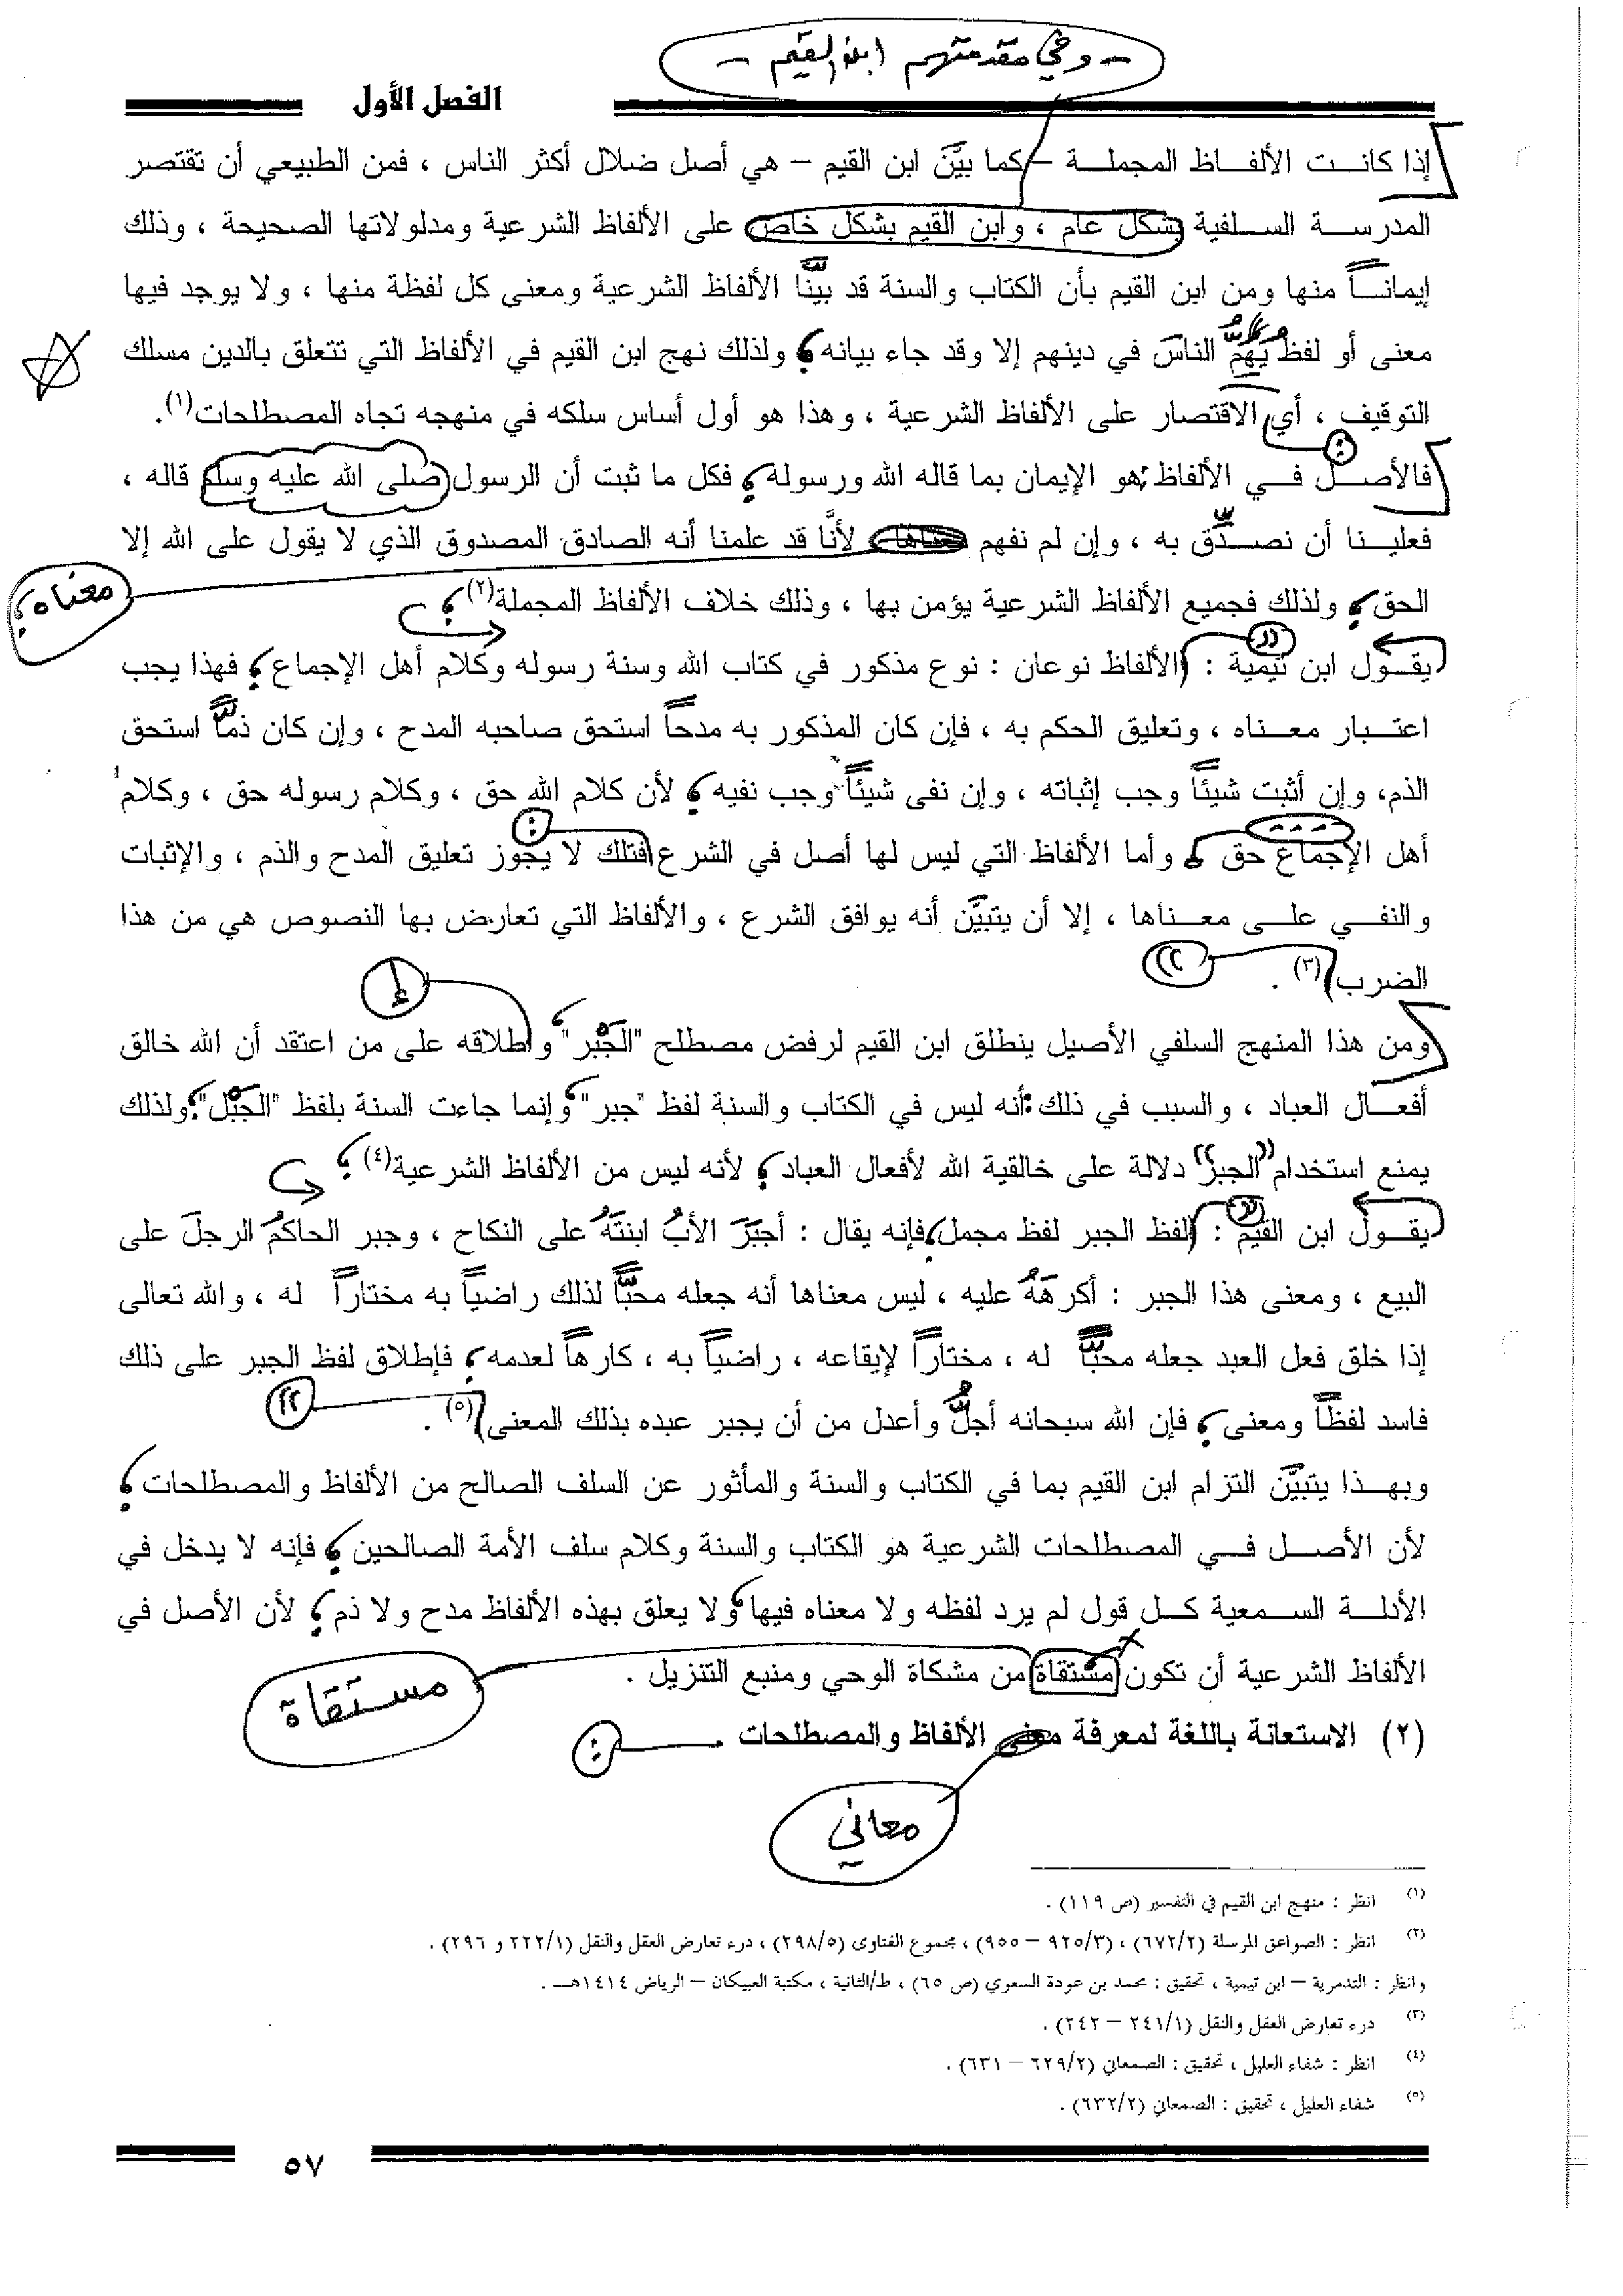 - وفي مقدمتهم ابن القيم -
الفصل الأول
إذا كانت الألفاظ المجملة – كما بيَّن ابن القيم – هي أصل ضلال أكثر الناس ، فمن الطبيعي أن تقتصر
المدرسة السلفية بشكل عام ، وابن القيم بشكل خاص على الألفاظ الشرعية ومدلولاتها الصحيحة ، وذلك
إيماناً منها ومن ابن القيم بأن الكتاب والسنة قد بيَّنا الألفاظ الشرعية ومعنى كل لفظة منها ، ولا يوجد فيها
معنى أو لفظ يَهُمُّ الناسَ في دينهم إلا وقد جاء بيانه؛ ولذلك نهج ابن القيم في الألفاظ التي تتعلق بالدين مسلك
التوقيف ، أي الاقتصار على الألفاظ الشرعية ، وهذا هو أول أساس سلكه في منهجه تجاه المصطلحات(١).
فالأصل في الألفاظ: هو الإيمان بما قاله الله ورسوله؛ فكل ما ثبت أن الرسول صلى الله عليه وسلم قاله ،
فعلينا أن نصدِّق به ، وإن لم نفهم معناها لأنَّا قد علمنا أنه الصادق المصدوق الذي لا يقول على الله إلا
معناه؛
الحق؛ ولذلك فجميع الألفاظ الشرعية يؤمن بها ، وذلك خلاف الألفاظ المجملة(٢)؛
يقول ابن تيمية : ((الألفاظ نوعان : نوع مذكور في كتاب الله وسنة رسوله وكلام أهل الإجماع؛ فهذا يجب
اعتبار معناه ، وتعليق الحكم به ، فإن كان المذكور به مدحاً استحق صاحبه المدح ، وإن كان ذمّاً استحق
الذم، وإن أثبت شيئاً وجب إثباته ، وإن نفى شيئاً وجب نفيه؛ لأن كلام الله حق ، وكلام رسوله حق ، وكلام
أهل الإجماع حق .... وأما الألفاظ التي ليس لها أصل في الشرع: فتلك لا يجوز تعليق المدح والذم ، والإثبات
والنفي على معناها ، إلا أن يتبيَّن أنه يوافق الشرع ، والألفاظ التي تعارض بها النصوص هي من هذا
الضرب))(٣) .
ومن هذا المنهج السلفي الأصيل ينطلق ابن القيم لرفض مصطلح "الجَبْر"، وإطلاقه على من اعتقد أن الله خالق
أفعال العباد ، والسبب في ذلك: أنه ليس في الكتاب والسنة لفظ "جبر"، وإنما جاءت السنة بلفظ "الجَبْل"؛ ولذلك
يمنع استخدام "الجبر" دلالة على خالقية الله لأفعال العباد؛ لأنه ليس من الألفاظ الشرعية(٤)؛
يقول ابن القيم : ((لفظ الجبر لفظ مجمل؛ فإنه يقال : أجبَرَ الأبُ ابنتَهُ على النكاح ، وجبر الحاكمُ الرجلَ على
البيع ، ومعنى هذا الجبر : أكرهَهُ عليه ، ليس معناها أنه جعله محبّاً لذلك راضياً به مختاراً له ، والله تعالى
إذا خلق فعل العبد جعله محبّاً له ، مختاراً لإيقاعه ، راضياً به ، كارهاً لعدمه؛ فإطلاق لفظ الجبر على ذلك
فاسد لفظاً ومعنى؛ فإن الله سبحانه أجلُّ وأعدل من أن يجبر عبده بذلك المعنى))(٥) .
وبهذا يتبيَّن التزام ابن القيم بما في الكتاب والسنة والمأثور عن السلف الصالح من الألفاظ والمصطلحات؛
لأن الأصل في المصطلحات الشرعية هو الكتاب والسنة وكلام سلف الأمة الصالحين؛ فإنه لا يدخل في
الأدلة السمعية كل قول لم يرد لفظه ولا معناه فيها، ولا يعلق بهذه الألفاظ مدح ولا ذم؛ لأن الأصل في
الألفاظ الشرعية أن تكون مشتقاة من مشكاة الوحي ومنبع التنزيل .
مستقاة
(٢) الاستعانة باللغة لمعرفة معنى الألفاظ والمصطلحات :
معاني
(١) انظر : منهج ابن القيم في التفسير (ص ١١٩) .
(٢) انظر : الصواعق المرسلة (٦٧٢/٢) ، (٩٢٥/٣ – ٩٥٥) ، مجموع الفتاوى (٢٩٨/٥) ، درء تعارض العقل والنقل (٢٢٢/١ و ٢٩٦) .
وانظر : التدمرية – ابن تيمية ، تحقيق : محمد بن عودة السعوي (ص ٦٥) ، ط/الثانية ، مكتبة العبيكان – الرياض ١٤١٤هـ .
(٣) درء تعارض العقل والنقل (٢٤١/١ – ٢٤٢) .
(٤) انظر : شفاء العليل ، تحقيق : الصمعاني (٦٢٩/٢ – ٦٣١) .
(٥) شفاء العليل ، تحقيق : الصمعاني (٦٣٢/٢) .
٥٧